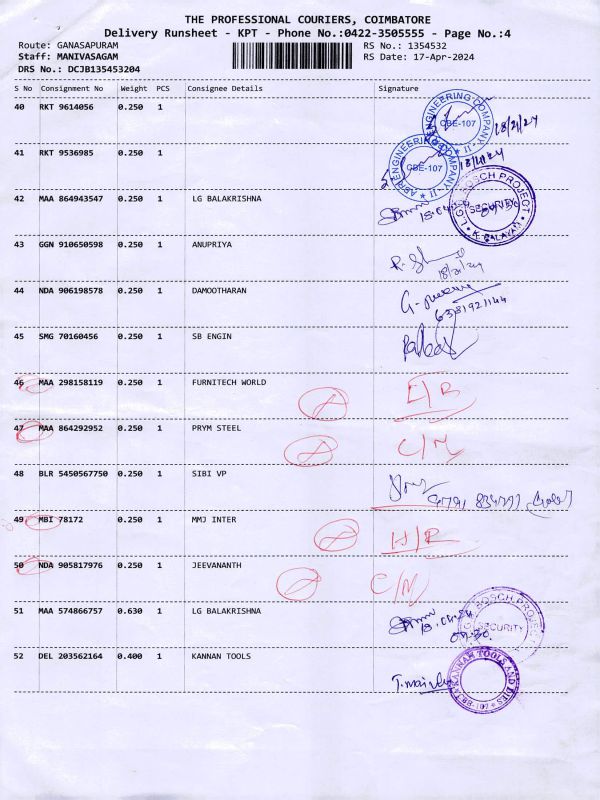 THE PROFESSIONAL COURIERS, COIMBATORE
Delivery Runsheet - KPT - Phone No.:0422-3505555 - Page No.:4
Route: GANASAPURAM RS No.: 1354532
Staff: MANIVASAGAM RS Date: 17-Apr-2024
DRS No.: DCJB135453204
S No Consignment No Weight PCS Consignee Details Signature
40 RKT 9614056 0.250 1
ENGINEERING COMPANY CBE-107
41 RKT 9536985 0.250 1
ENGINEERING COMPANY CBE-107
42 MAA 864943547 0.250 1 LG BALAKRISHNA
BOSCH PROJECT SECURITY
43 GGN 910650598 0.250 1 ANUPRIYA
44 NDA 906198578 0.250 1 DAMOOTHARAN
6381921144
45 SMG 70160456 0.250 1 SB ENGIN
46 MAA 298158119 0.250 1 FURNITECH WORLD E/B
47 MAA 864292952 0.250 1 PRYM STEEL C/M
48 BLR 5450567750 0.250 1 SIBI VP
49 MBI 78172 0.250 1 MMJ INTER H/R
50 NDA 905817976 0.250 1 JEEVANANTH C/M
51 MAA 574866757 0.630 1 LG BALAKRISHNA
BOSCH PROJECT SECURITY
52 DEL 203562164 0.400 1 KANNAN TOOLS
KANNAN TOOLS AND DIES